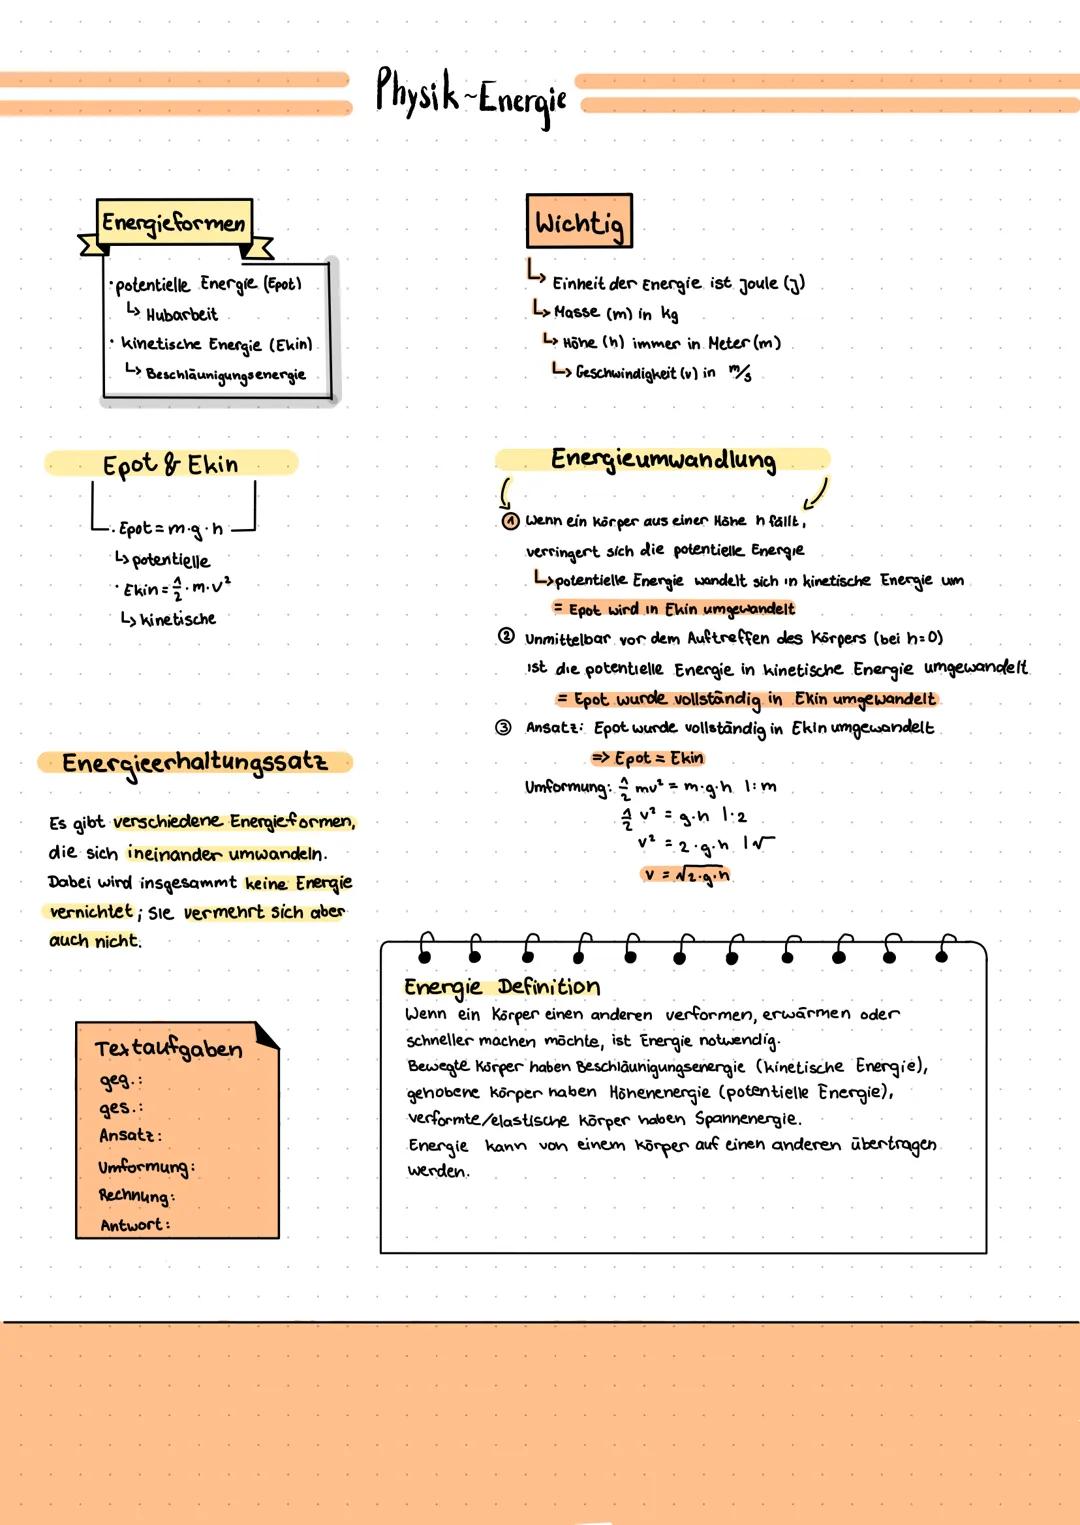 Physik ~ Energie
Energieformen
· potentielle Energie (Epot)
↳ Hubarbeit
· kinetische Energie (Ekin)
↳ Beschläunigungsenergie
Wichtig
↳ Einheit der Energie ist Joule (J)
↳ Masse (m) in kg
↳ Höhe (h) immer in Meter (m)
↳ Geschwindigkeit (v) in m/s
Epot & Ekin
· Epot = m·g·h
↳ potentielle
· Ekin = 1/2 · m·v²
↳ kinetische
Energieumwandlung
① Wenn ein Körper aus einer Höhe h fällt,
verringert sich die potentielle Energie
↳ potentielle Energie wandelt sich in kinetische Energie um
= Epot wird in Ekin umgewandelt
② Unmittelbar vor dem Auftreffen des Körpers (bei h=0)
ist die potentielle Energie in kinetische Energie umgewandelt
= Epot wurde vollständig in Ekin umgewandelt
③ Ansatz: Epot wurde vollständig in Ekin umgewandelt
=> Epot = Ekin
Umformung: 1/2 mv² = m·g·h |:m
1/2 v² = g·h |·2
v² = 2·g·h |√
v = √2·g·h
Energieerhaltungssatz
Es gibt verschiedene Energieformen,
die sich ineinander umwandeln.
Dabei wird insgesammt keine Energie
vernichtet; sie vermehrt sich aber
auch nicht.
Textaufgaben
geg.:
ges.:
Ansatz:
Umformung:
Rechnung:
Antwort:
Energie Definition
Wenn ein Körper einen anderen verformen, erwärmen oder
schneller machen möchte, ist Energie notwendig.
Bewegte Körper haben Beschläunigungsenergie (kinetische Energie),
gehobene Körper haben Höhenenergie (potentielle Energie),
verformte/elastische Körper haben Spannenergie.
Energie kann von einem Körper auf einen anderen übertragen
werden.